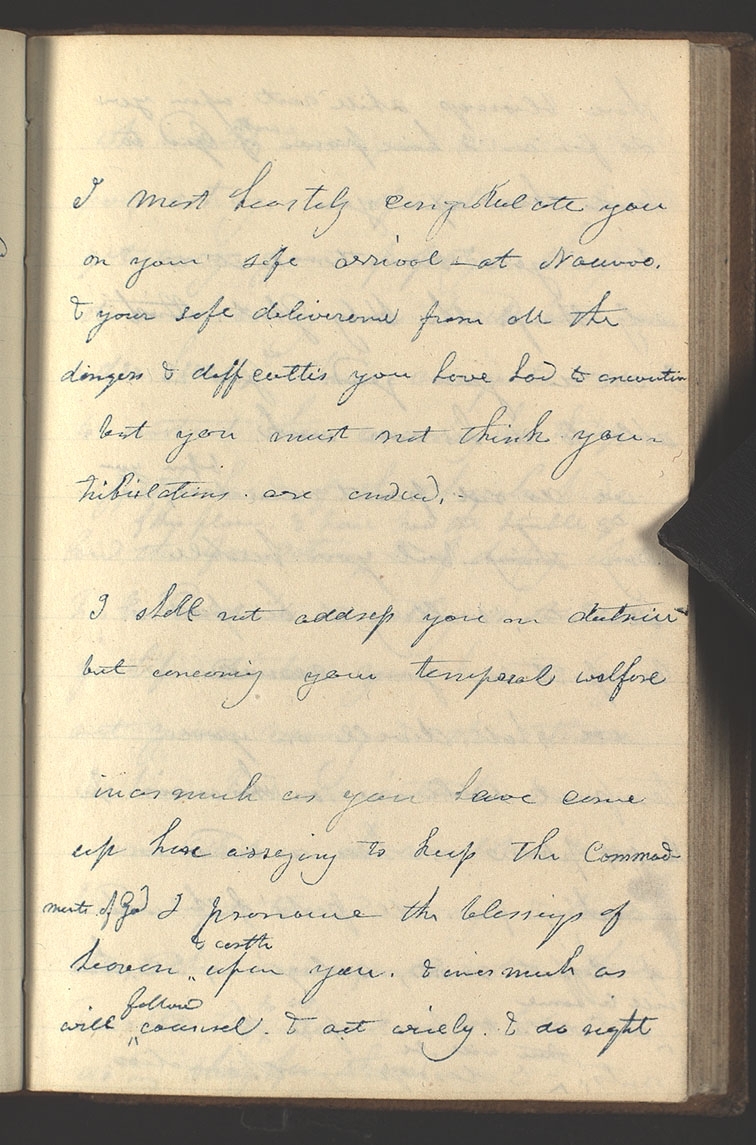 I most heartily congratulate you
on your safe arrival at Nauvoo.
& your safe deliverence from all the
dangers & difficulties you have had to encounter
but you must not think your
tribulations are ended.
I shall not address you on doctrine
but concerning your temporal welfare
inasmuch as you have come
up here assaying to keep the Commad-
ments of God I pronounce the blessings of
& earth
heaven upon you. & inasmuch as
follow
will counsel. & act wisely. & do right